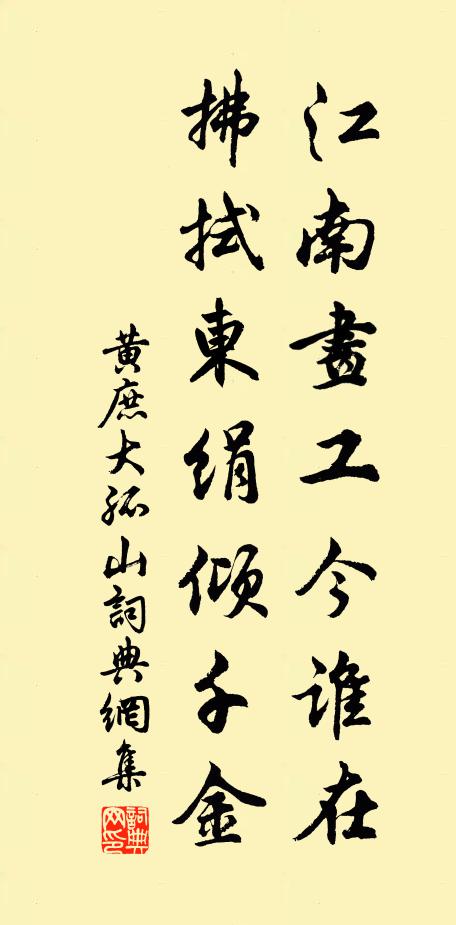 江南畫工今誰在
拂拭東絹傾千金
黃庶大孤山詞典網集
詞典網印